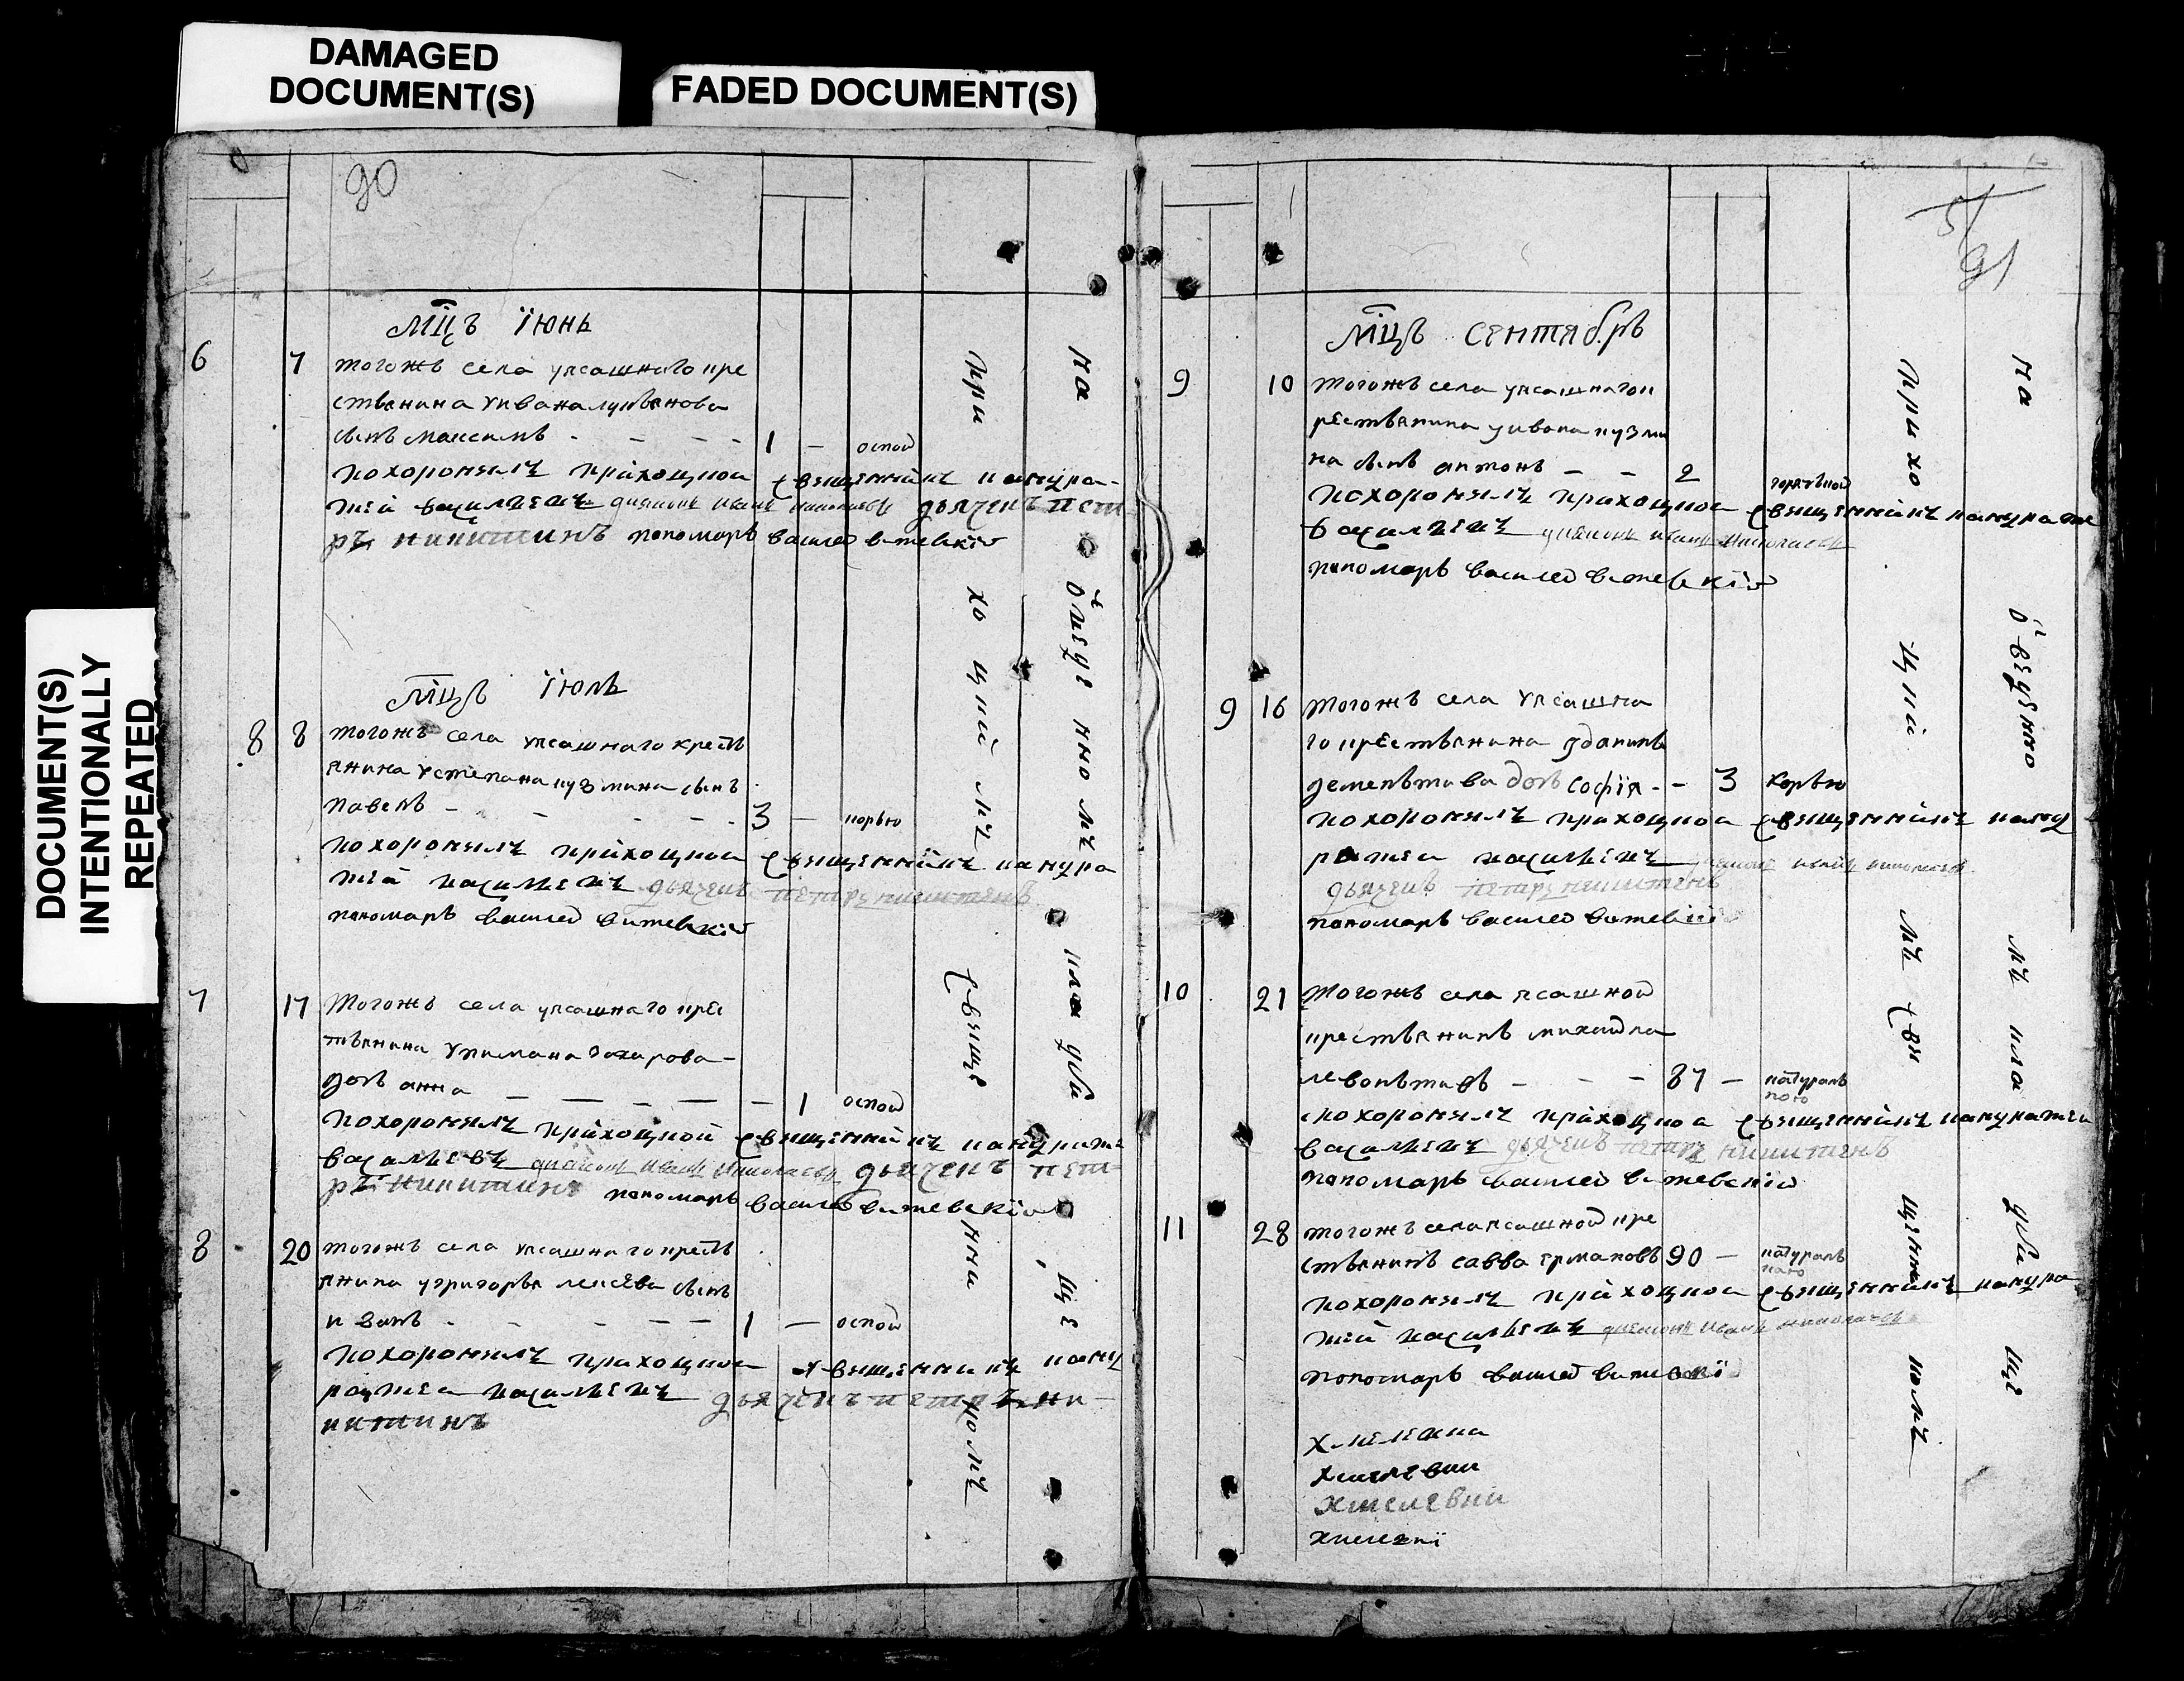 DAMAGED
DOCUMENT(S)
FADED DOCUMENT(S)
DOCUMENT(S)
INTENTIONALLY
REPEATED
90
мцъ їюнь
6 7 тогожъ села уясашнаго кре
стьянина уивана лукьянова
сынъ максимъ - - - - 1 - оспой
похоронялъ приходцкой священникъ кандра-
тей василиевъ диаконъ иванъ николаевъ дьячекъ пет
ръ никитинъ пономарь василей витевскїй
мцъ їюль
8 8 тогожъ села уясашнаго кресть
янина устепана кузмина сынъ
павелъ - - - - - 3 - корью
похоронялъ приходцкой священникъ кандра
тей василиевъ дьячекъ петръ никитинъ
пономарь василей витевскїй
7 17 тогожъ села уясашнаго кре
стьянина захарова
дочь анна - - - - - 1 оспой
похоронялъ приходцкой священникъ кандрате
василиевъ диаконъ иванъ николаевъ дьячекъ пет
ръ никитинъ пономарь василей витевскїй
8 20 тогожъ села уясашнаго кресть
янина угригорья сынъ
- - - - - 1 - оспой
похоронялъ приходцкой священникъ канд
ратей василиевъ дьячекъ петръ ни
китинъ
при хо цкий лъ свяще нни комъ
на ѡ
91
мцъ сентябръ
9 10 тогожъ села уясашнагок
рестьянина уивана кузми
на сынъ антонъ - - 2 горячкой
похоронялъ приходцкой священникъ кандрате
василиевъ диаконъ иванъ николаевъ
пономарь василей витевскїй
9 16 тогожъ села уясашна
го крестьянина уданилы
дементиева дочь софїя - - 3 корью
похоронялъ приходцкой священникъ канд
ратей василиевъ диаконъ иванъ николаевъ
дьячекъ петръ никитинъ
пономарь василей витевскїй
10 21 тогожъ села ясашной
крестьянинъ михайла
левонътивъ - - - 87 - натураль
ного
похоронялъ приходцкой священникъ кандратей
василиевъ дьячекъ петръ никитинъ
пономарь василей витевскїй
11 28 тогожъ села ясашной кре
стьянинъ савва ермаковъ 90 - натураль
ного
похоронялъ приходцкой священникъ кандра
тей василиевъ диаконъ иванъ николаевъ
пономарь василей витевскї
прихо цкий лъ свя щенни комъ
на